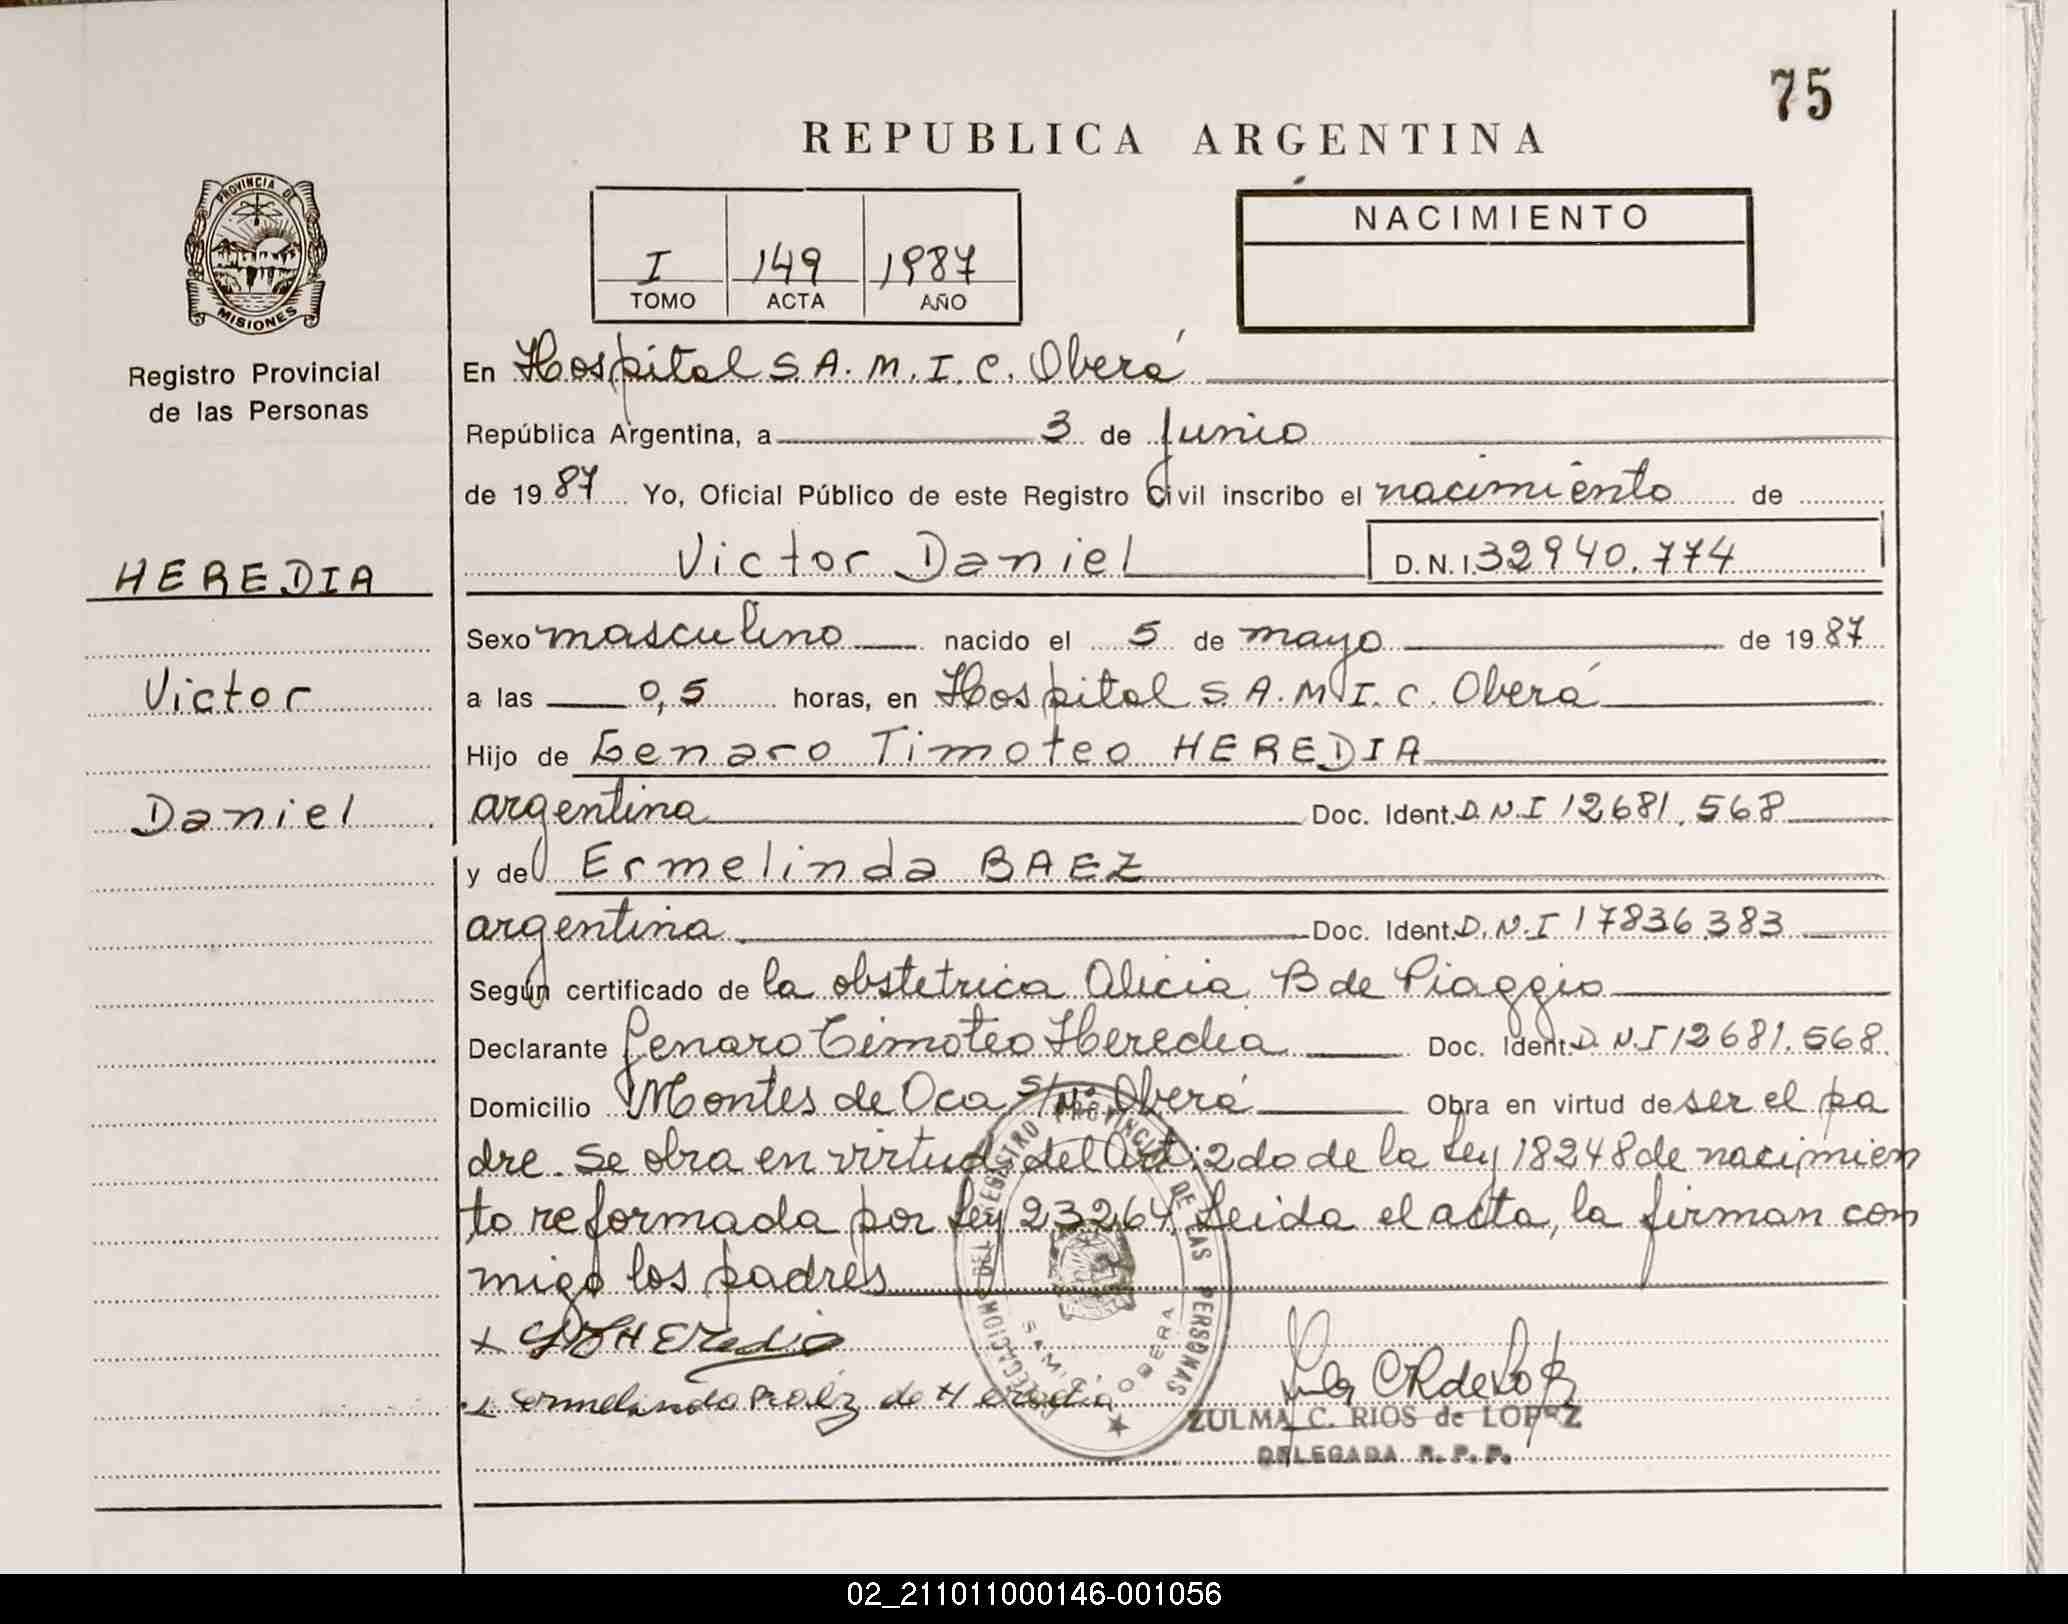 75
REPUBLICA ARGENTINA
PROVINCIA DE
MISIONES
Registro Provincial
de las Personas
I 149 1987
TOMO ACTA AÑO
NACIMIENTO
En Hospital S.A.M.I.C. Oberá
República Argentina, a 3 de Junio
de 1987 Yo, Oficial Público de este Registro Civil inscribo el nacimiento de
Victor Daniel D.N.I. 32940.774
HEREDIA
Victor
Daniel
Sexo masculino nacido el 5 de mayo de 1987
a las 0,5 horas, en Hospital S.A.M.I.C. Oberá
Hijo de Genaro Timoteo HEREDIA
argentina Doc. Ident. D.N.I 12681.568
y de Ermelinda BAEZ
argentina Doc. Ident. D.N.I 17836.383
Según certificado de la obstetrica Alicia B de Piaggio
Declarante Genaro Timoteo Heredia Doc. Ident. D.N.I 12681.568
Domicilio Montes de Oca S/Nº Oberá Obra en virtud de ser el pa
dre. Se obra en virtud del Art: 2do de la Ley 18248 de nacimien
to reformada por Ley 23264. Leida el acta, la firman con
migo los padres
DELEGACION DEL REGISTRO PROVINCIAL DE LAS PERSONAS
S.A.M.I.C. OBERA
x Heredia
x Ermelinda Baez de Heredia
ZULMA C. RIOS de LOPEZ
DELEGADA R.P.P.
02_211011000146-001056